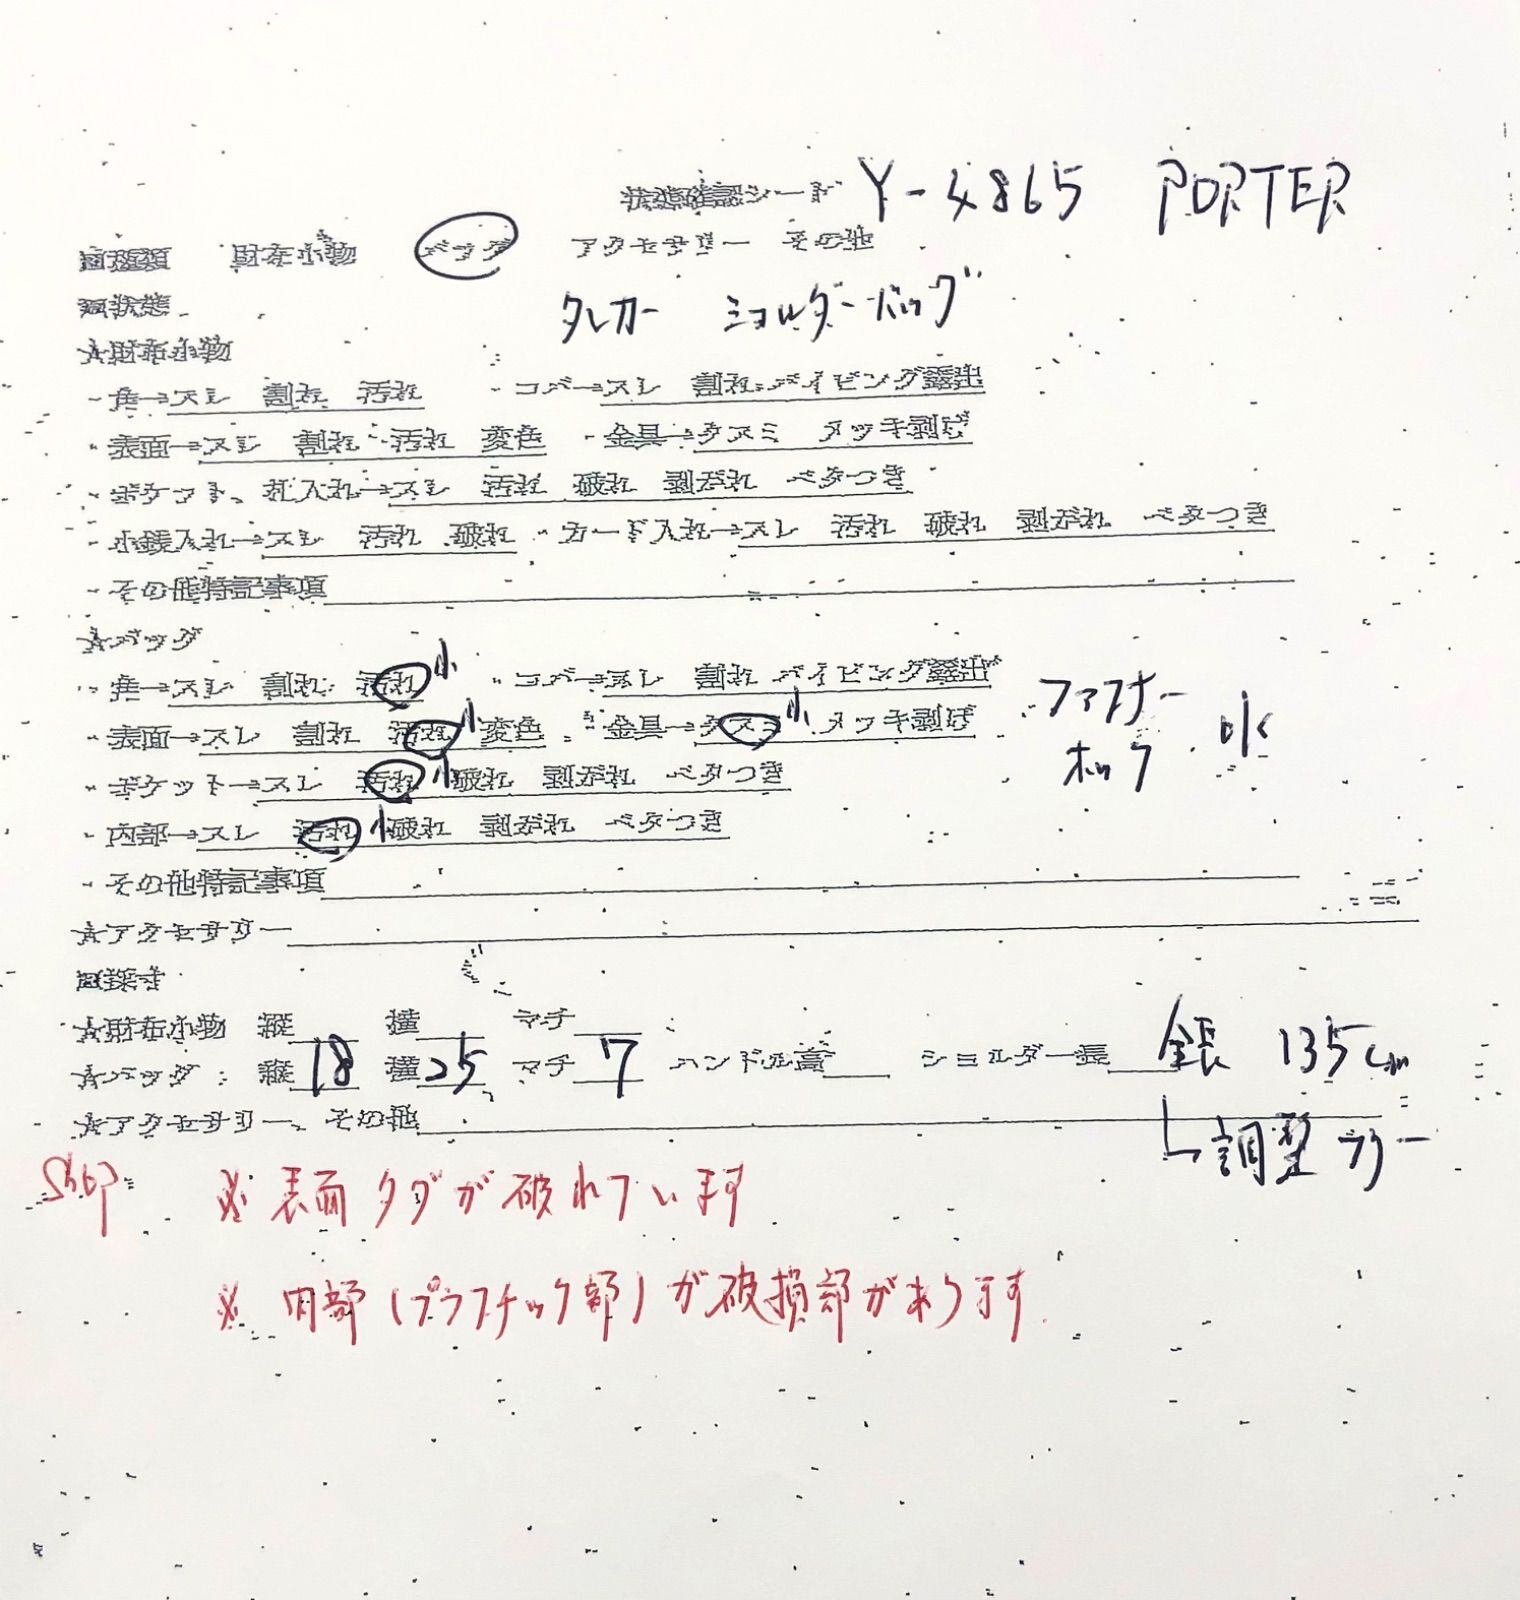 状態確認シート Y-4865 PORTER
■種類 財布小物 バッグ アクセサリー その他
■状態 タンカー ショルダーバッグ
☆財布小物
・角→スレ 割れ 汚れ ・コバ→スレ 割れ パイピング露出
・表面→スレ 割れ 汚れ 変色 ・金具→クスミ メッキ剥げ
・ポケット、札入れ→スレ 汚れ 破れ 剥がれ ベタつき
・小銭入れ→スレ 汚れ 破れ ・カード入れ→スレ 汚れ 破れ 剥がれ ベタつき
・その他特記事項
☆バッグ
・角→スレ 割れ 汚れ 小 ・コバ→スレ 割れ パイピング露出
・表面→スレ 割れ 汚れ 小 変色 ・金具→クスミ 小 メッキ剥げ ファスナー
・ポケット→スレ 汚れ 小 破れ 剥がれ ベタつき ホック
・内部→スレ 汚れ 小 破れ 剥がれ ベタつき
・その他特記事項
☆アクセサリー
■採寸
☆財布小物 縦 横 マチ
☆バッグ 縦 18 横 25 マチ 7 ハンドル高 ショルダー長 全長 135cm
☆アクセサリー、その他 調整フリー
※ 表面タグが破れています
※ 内部(プラスチック部)が破損部があります